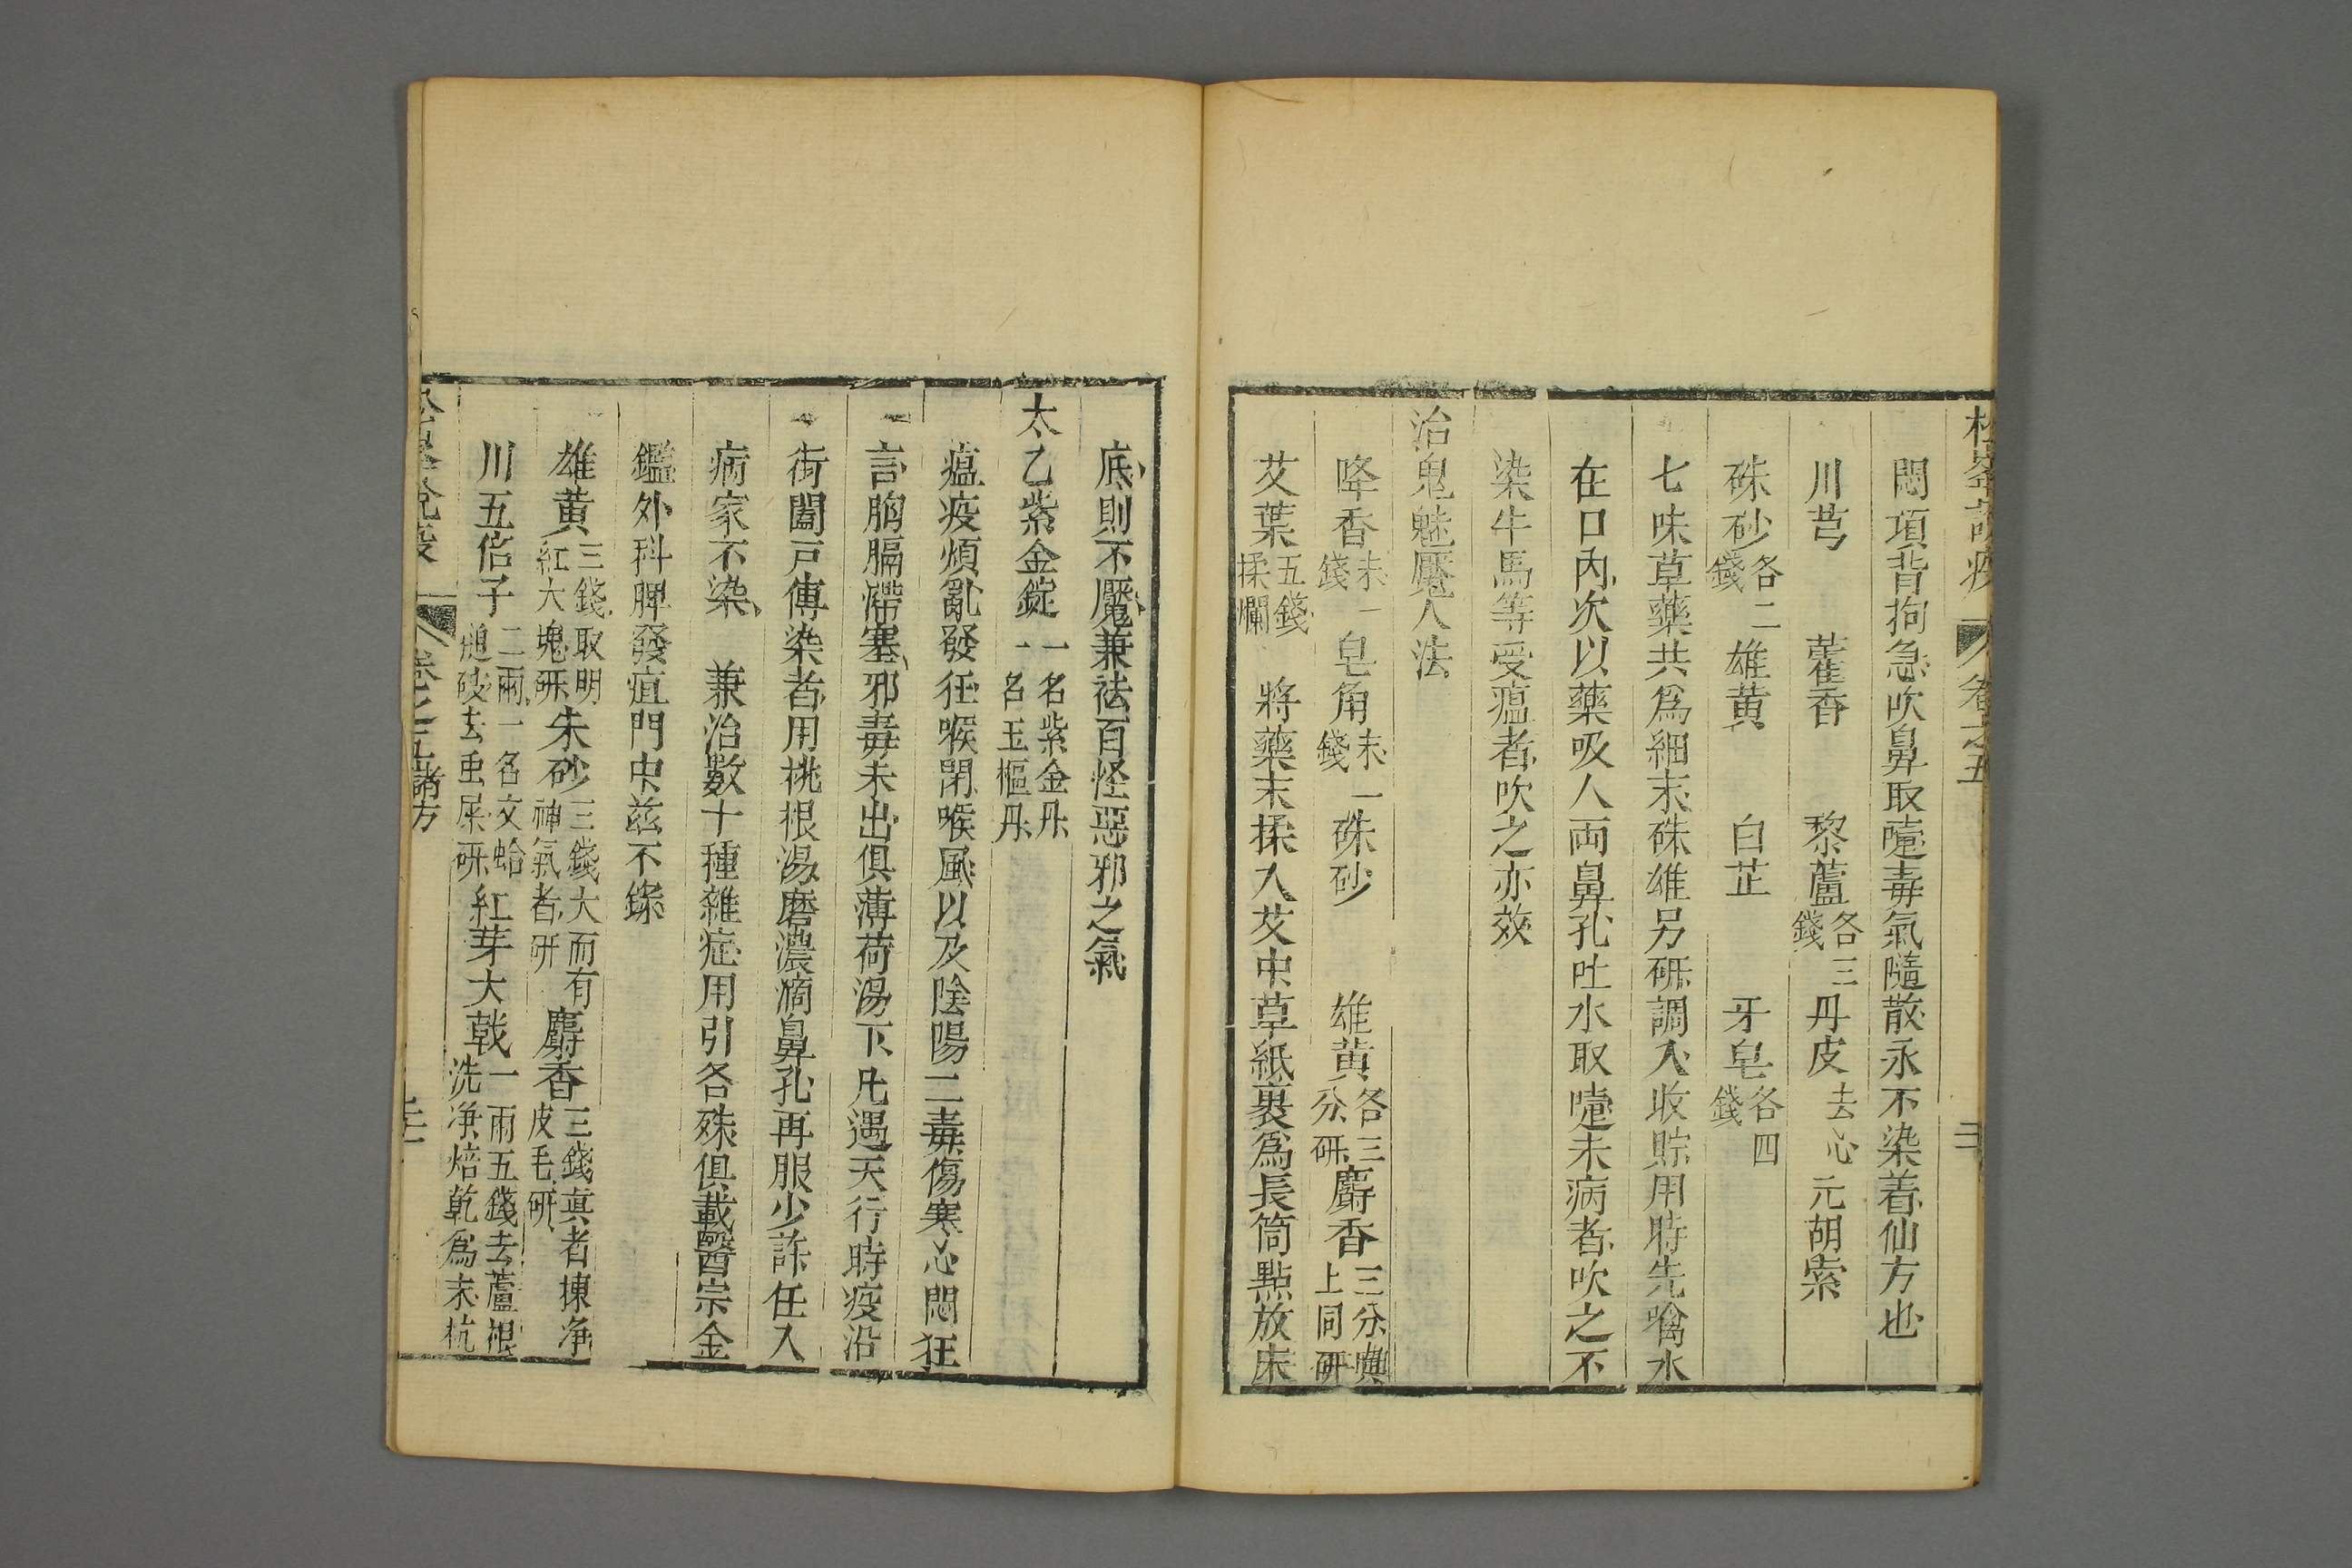 松峯說疫 卷之五
悶項背拘急吹鼻取嚏毒氣隨散永不染着仙方也
川芎 藿香 黎蘆各三錢 丹皮去心 元胡索
硃砂各二錢 雄黄 白芷 牙皂各四錢
七味草藥共爲細末硃雄另硏調入收貯用時先噙水
在口內次以藥吸人両鼻孔吐水取嚏未病者吹之不
染牛馬等受瘟者吹之亦效
治鬼魅魘人法
降香末一錢 皂角末一錢 硃砂 雄黄各三分硏 麝香三分與上同硏
艾葉五錢揉爛 將藥末揉入艾中草紙裹爲長筒點放床
底則不魘兼祛百怪惡邪之氣
太乙紫金錠一名紫金丹一名玉樞丹
瘟疫煩亂發狂喉閉喉風以及陰陽二毒傷寒心悶狂
言胸膈滯塞邪毒未出俱薄荷湯下凡遇天行時疫沿
街闔戸傳染者用桃根湯磨濃滴鼻孔再服少許任入
病家不染 兼治數十種雜症用引各殊俱載醫宗金
鑑外科脾發疽門中茲不錄
雄黄三錢取明紅大塊硏 朱砂三錢大而有神氣者硏 麝香三錢真者揀凈皮毛硏
川五倍子二兩一名文蛤搥破去虫屎硏 紅芽大戟一兩五錢去蘆根洗凈焙乾爲末杭
松峯說疫 卷之五 諸方